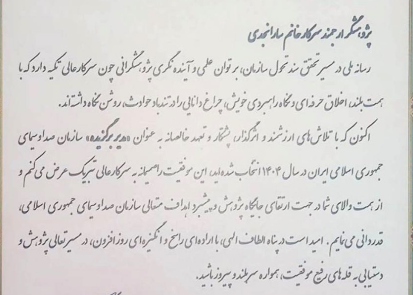 پژوهشگر ارجمند سرکار خانم سارا نجدی
رسانه ملی در مسیر تحقق سند تحول سازمان، بر توان علمی و آینده نگری پژوهشگرانی چون سرکارعالی تکیه دارد که با
همت بلند، اخلاق حرفه‌ای و نگاه راهبردی خویش، چراغ دانایی را در تندباد حوادث، روشن نگاه داشته‌اند.
اکنون که با تلاش‌های ارزشمند و اثرگذار، پشتکار و تعهد خالصانه به عنوان «مدیر برگزیده» سازمان صداوسیمای
جمهوری اسلامی ایران در سال ۱۴۰۴ انتخاب شده‌اید، این موفقیت را صمیمانه به سرکارعالی تبریک عرض می‌کنم و
از همت والای شما در جهت ارتقای جایگاه پژوهش و پیشبرد اهداف متعالی سازمان صداوسیمای جمهوری اسلامی،
قدردانی می‌نمایم. امید است در پناه الطاف الهی، با اراده‌ای راسخ و انگیزه‌ای روزافزون، در مسیر تعالی پژوهش و
دستیابی به قله‌های رفیع موفقیت، همواره سربلند و پیروز باشید.